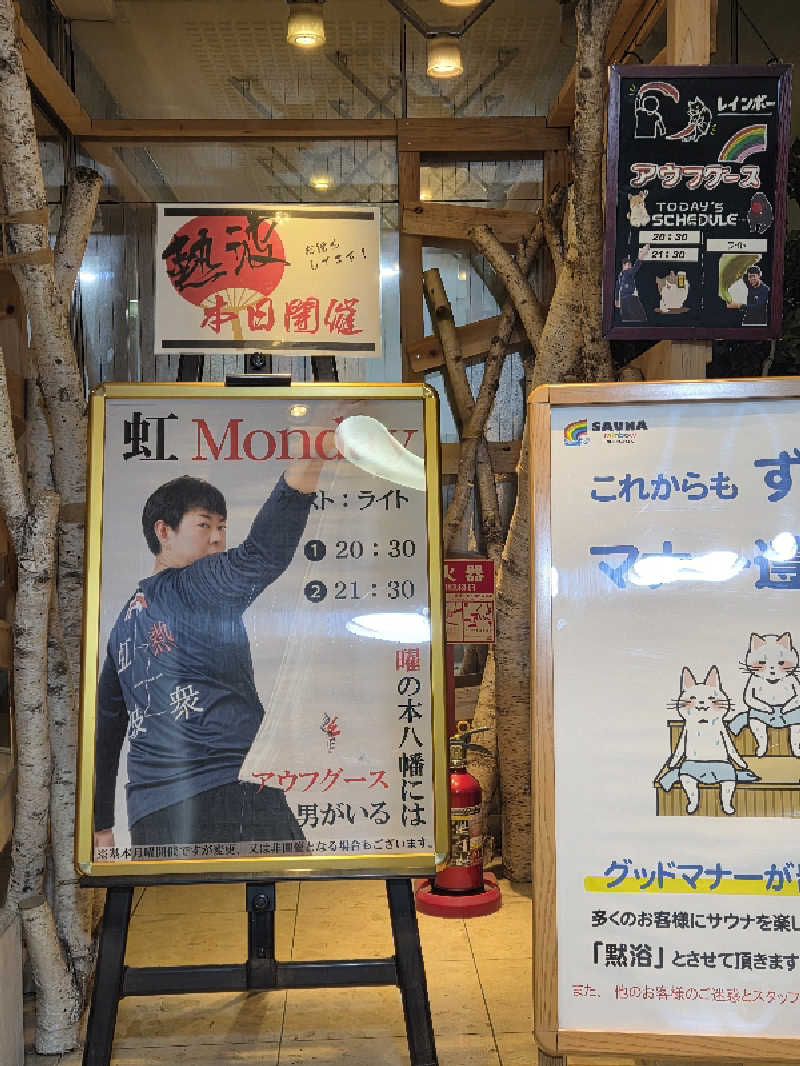 熱波
お待ち
してます!
本日開催
レインボー
アウフグース
TODAY'S
SCHEDULE
20:30
21:30
ライト
虹 Monday
ゲスト:ライト
❶ 20:30
❷ 21:30
熱
虹
波
衆
曜の本八幡には
アウフグース
男がいる
※基本月曜開催ですが変更、又は非開催となる場合もございます。
火器
SAUNA
rainbow
これからも ず
マナー
グッドマナーが
多くのお客様にサウナを楽し
「黙浴」とさせて頂きます
また、他のお客様のご迷惑とスタッフ